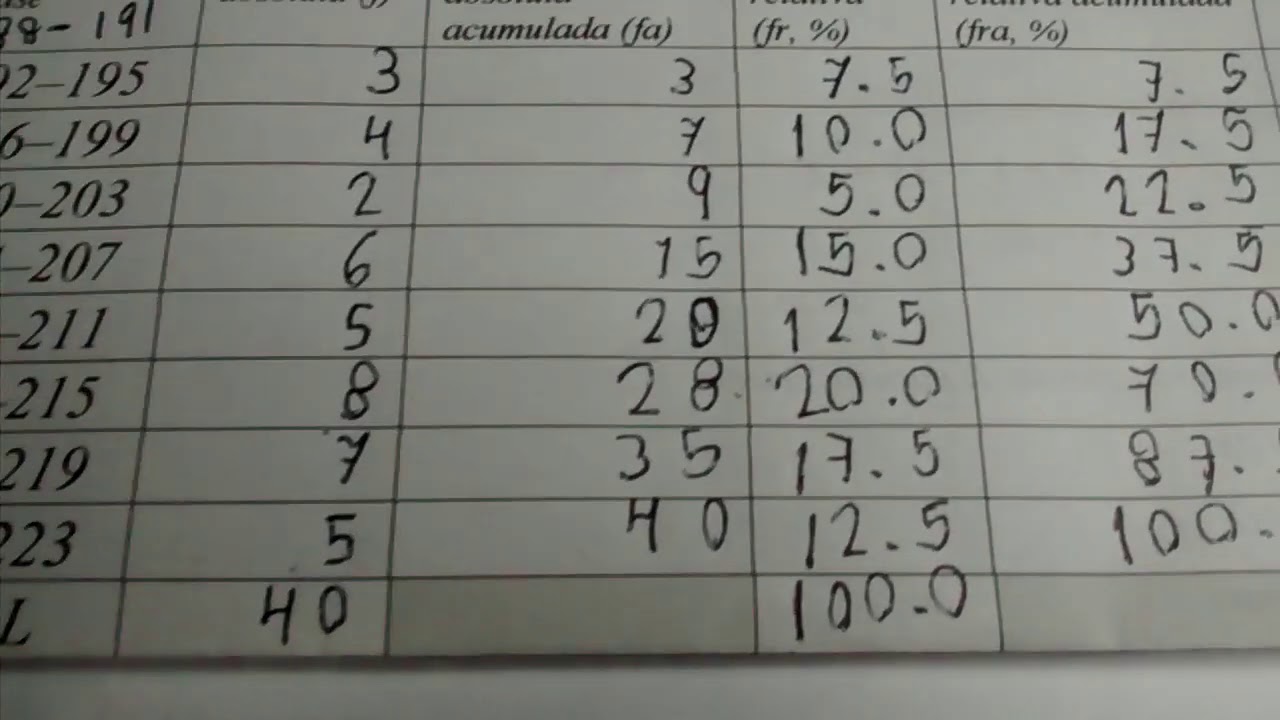 acumulada (fa) (fr, %) (fra, %)
-191
2-195 3 3 7.5 7.5
6-199 4 7 10.0 17.5
-203 2 9 5.0 22.5
-207 6 15 15.0 37.5
-211 5 20 12.5 50.0
-215 8 28 20.0 70.
219 7 35 17.5 87.
223 5 40 12.5 100.
L 40 100.0